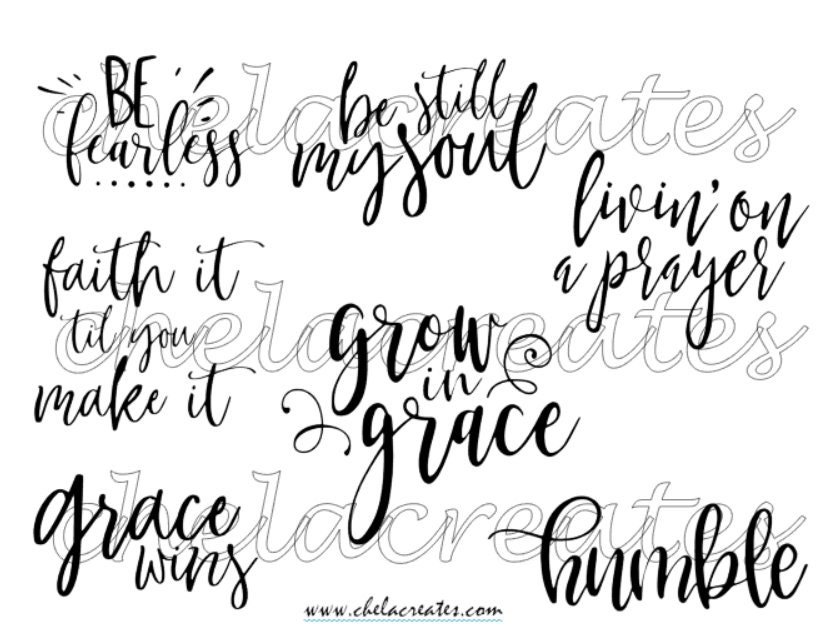 BE
fearless
be still
my soul
livin' on
a prayer
faith it
'til you
make it
grow
in
grace
grace
wins
humble
chelacreates
chelacreates
chelacreates
www.chelacreates.com